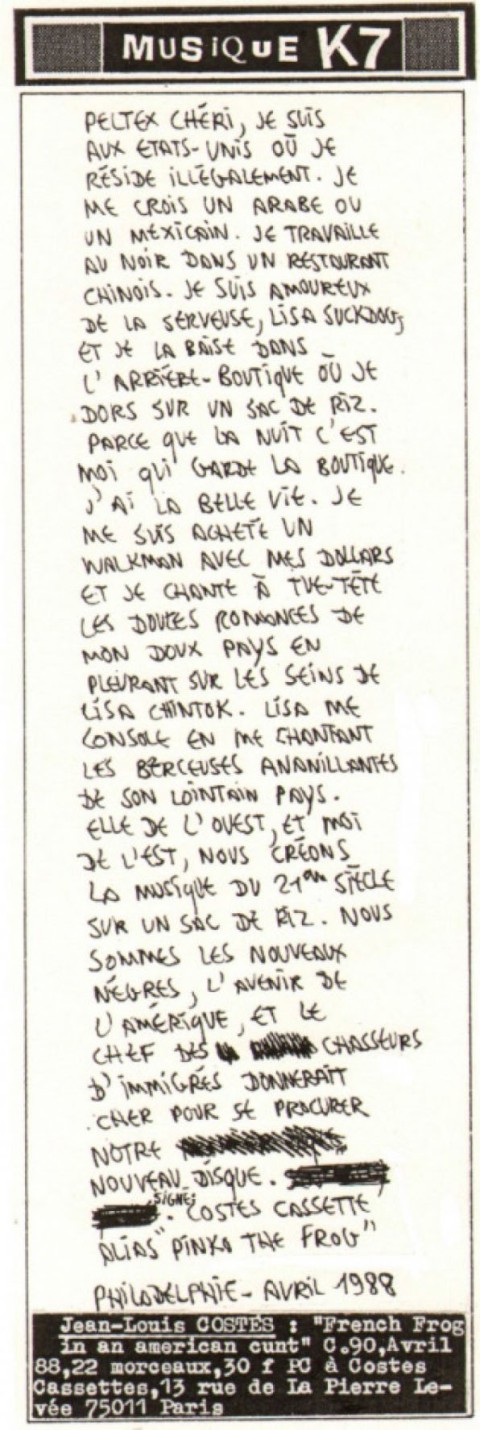 MUSIQUE K7
PELTEX CHÉRI, JE SUIS
AUX ETATS-UNIS OÙ JE
RÉSIDE ILLÉGALEMENT. JE
ME CROIS UN ARABE OU
UN MEXICAIN. JE TRAVAILLE
AU NOIR DANS UN RESTAURANT
CHINOIS. JE SUIS AMOUREUX
DE LA SERVEUSE, LISA SUCKDOG,
ET JE LA BAISE DANS
L'ARRIÈRE-BOUTIQUE OÙ JE
DORS SUR UN SAC DE RIZ.
PARCE QUE LA NUIT C'EST
MOI QUI GARDE LA BOUTIQUE.
J'AI LA BELLE VIE. JE
ME SUIS ACHETÉ UN
WALKMAN AVEC MES DOLLARS
ET JE CHANTE À TUE-TÊTE
LES DOUCES ROMANCES DE
MON DOUX PAYS EN
PLEURANT SUR LES SEINS DE
LISA CHINTOK. LISA ME
CONSOLE EN ME CHANTANT
LES BERCEUSES ANANILLANTES
DE SON LOINTAIN PAYS.
ELLE DE L'OUEST, ET MOI
DE L'EST, NOUS CRÉONS
LA MUSIQUE DU 21ème SIÈCLE
SUR UN SAC DE RIZ. NOUS
SOMMES LES NOUVEAUX
NÈGRES, L'AVENIR DE
L'AMÉRIQUE, ET LE
CHEF DES CHASSEURS
D'IMMIGRÉS DONNERAIT
CHER POUR SE PROCURER
NOTRE
NOUVEAU DISQUE.
SIGNÉ: COSTES CASSETTE
ALIAS "PINKO THE FROG"
PHILADELPHIE - AVRIL 1988
Jean-Louis COSTES : "French Frog
in an american cunt" C.90,Avril
88,22 morceaux,30 f PC à Costes
Cassettes,13 rue de La Pierre Le-
vée 75011 Paris